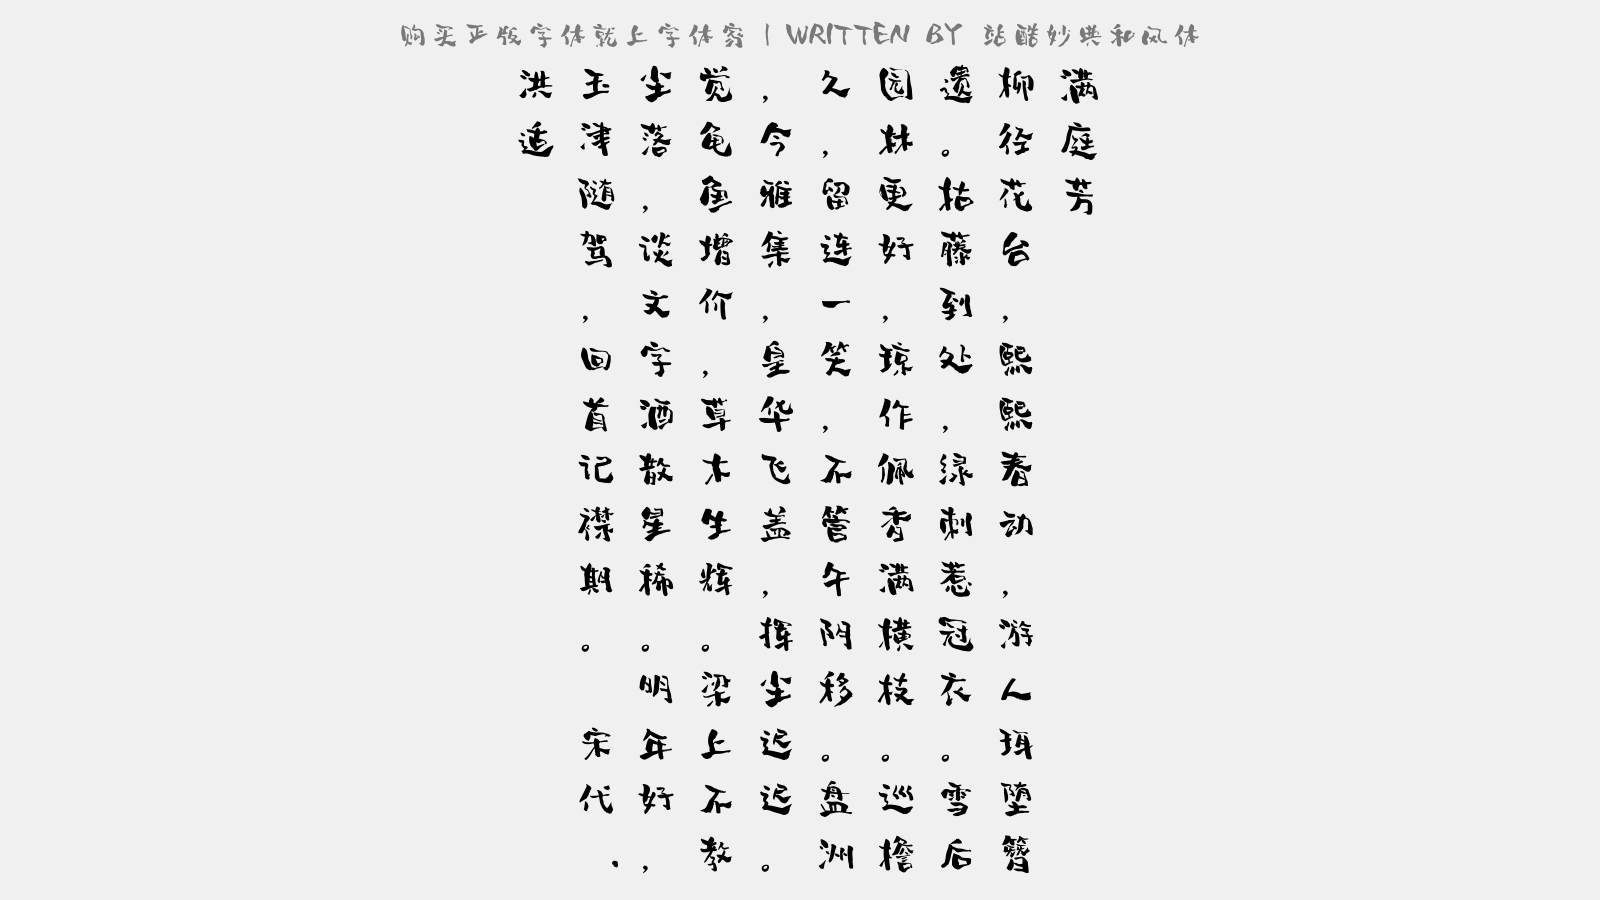 购买正版字体就上字体窝 | WRITTEN BY 站酷妙典和风体
满庭芳
柳径花台，熙熙春动，游人珥堕簪
遗。枯藤到处，绿刺惹冠衣。雪后
园林更好，琼作佩香满横枝。巡檐
久，留连一笑，不管午阴移。盘洲
，今雅集，皇华飞盖，挥尘迟迟。
觉龟鱼增价，草木生辉。梁上不教
尘落，谈文字酒散星稀。明年好，
玉津随驾，回首记襟期。 宋代·
洪适